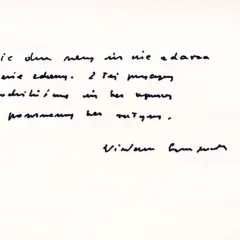 ic dwa razy się nie zdarza
nie zdarzy. Z tej przyczyny
odziliśmy się bez wprawy
pomrzemy bez rutyny.
Wisława Szymborska